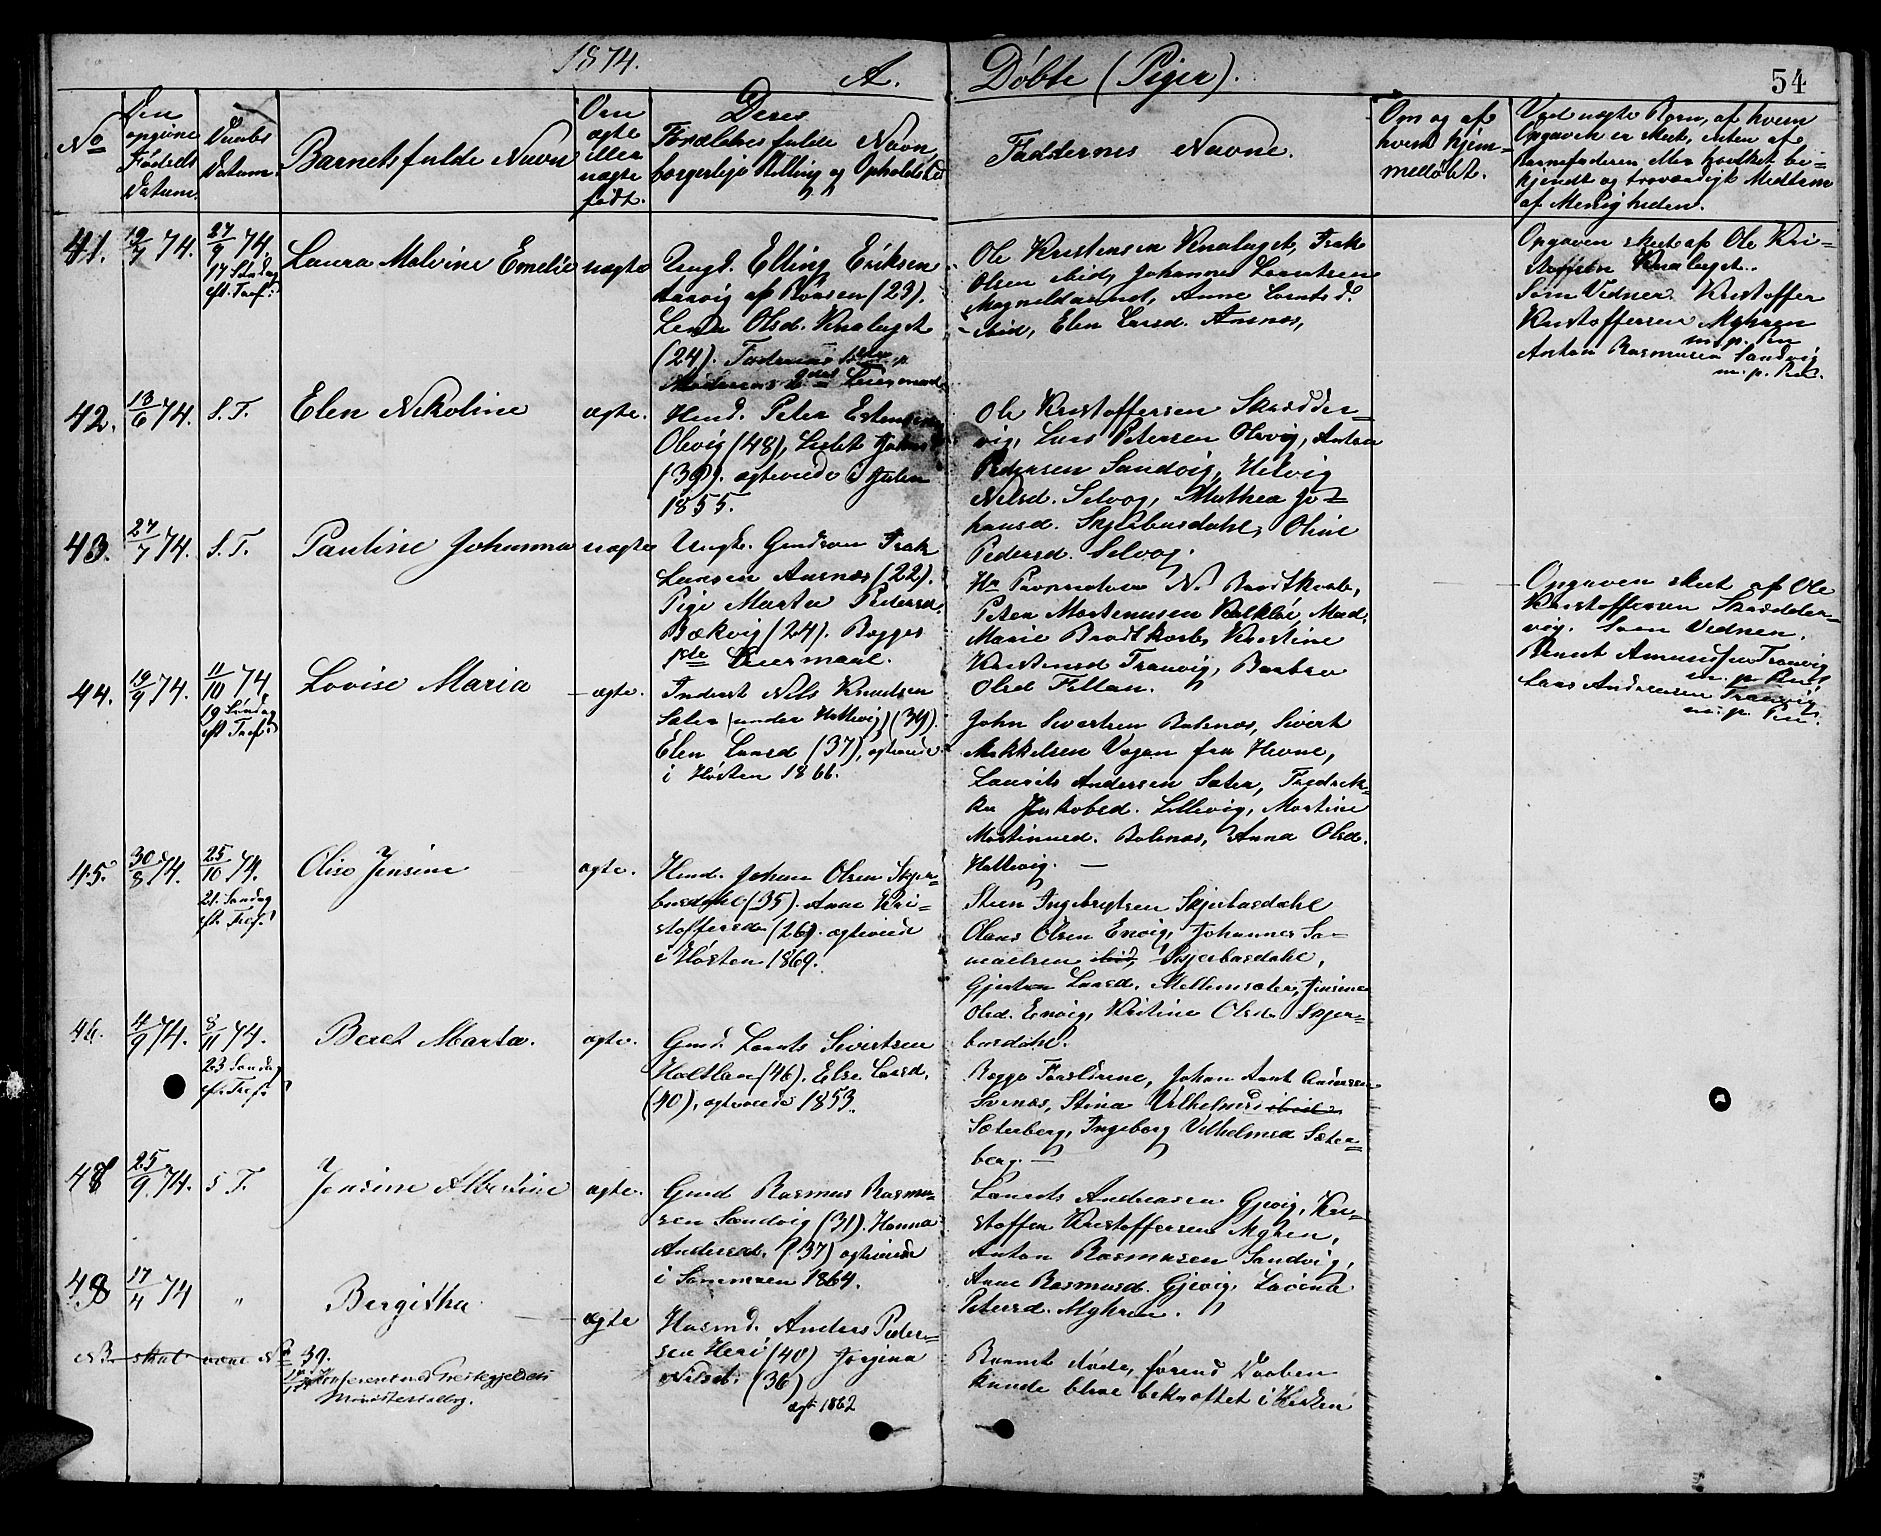 1874.
A. Döbte (Piger).
54
No
Den opgivne Fødsels Datum.
Daabs Datum.
Barnets fulde Navn
Om ægte eller uægte født.
Deres Forældres fulde Navn, borgerlige Stilling og Opholdsted
Faddernes Navne.
Om og af hvem hjemmedøbt.
Ved uægte Børn, af hvem Opgaven er skeet, enten af Barnefaderen eller hvilket bekjendt og troværdigt Medlem af Menigheden.
41. 19/7 74. 27/9 74. 17 Søndag eft. Tref:
Laura Malvine Emelie
uægte
Ungk. Elling Eriksen
af (23).
Lena Olsd. Knalaget
(24).
Ole Kristensen Knalaget,
Olsen ibid, Johannes Laurtsen
Magneldæmd, Anne
ibid, Elen Larsd. Ansnæs,
Opgaven skeet af Ole Kri-
stoffersen Knalaget.
Som Vedner. Kristoffer
Kristoffersen Myhren
m. p. Pen
Anton Rasmusen Sandvig
m. p. Pen.
42. 13/6 74. S. T.
Elen Nikoline
ægte.
Husd. Peter Estensen
Olsvig (48), Lisbet
(39). ægteviede i Julen
1855.
Ole Kristoffersen Skrædder-
vig, Lars Petersen Olsvig, Anton
Pedersen Sandvig, Helvig
Nilsd. Selvog, Mathea Jo-
hansd. Skjerbusdahl, Oline
Pedersd. Selvog.
43. 27/7 74. S. T.
Pauline Johanna
uægte
Ungk. Gaardsøn Isak
Larsen Ansnæs (22).
Pige Marta Pedersd.
Bækvig (24). Begges
1ste Leiermaal.
Hr. Proprietær N. Brodtkorb,
Peter Mortenusen Kalkløe, Mad.
Marie Brodtkorb, Kristine
Kristensd Tranvig, Barbro
Olsd Fillan.
Opgaven skeet af Ole
Kristoffersen Skrædder-
vig. Som Vedner.
Bernt Amundsen Tranvig
m. p. Pen
Lars Andersen Tranvig
m. p. Pen.
44. 19/9 74. 11/10 74. 19 Søndag eft Tref:
Lovise Maria
ægte.
Inderst Nils Knudsen
Sæter (under Hallevig) (39).
Elen Larsd (37), ægteviede
i Høsten 1866.
John Sivertsen Balsnæs, Sivert
Mikkelsen Vaagan fra Hevne,
Laurits Andersen Sæter, Fredrik-
ka Jakobsd. Lillevig, Martine
Martinusd. Balsnæs, Anna Olsd.
Hallevig. —
45. 30/8 74. 25/10 74. 21. Søndag eft. Tref:
Olise Jensine
ægte.
Husd. Johan Olsen Skjer-
busdahl (35). Anne Kri-
stoffersd. (26). ægteviede
i Høsten 1869.
Steen Ingebrigtsen Skjerbusdahl
Olaus Olsen Envig, Johannes Sa-
muelsen ibid, Skjerbusdahl,
Larsd. Mellemsæter, Jensine
Olsd. Envig, Kristine Olsd. Skjer-
busdahl.
46. 4/9 74. 8/11 74. 23 Søndag eft. Tref:
Beret Marta.
ægte.
Gmd. Laurits Sivertsen
Holtlan (46). Else Larsd.
(40), ægteviede 1853.
Begge Forældrene, Johan Arnt Andersen
Svenæs, Stina Vilhelmsd ibid
Sæterberg, Ingeborg Vilhelmsd Sæter-
berg. —
48 25/9. 74. S T.
Jensine Albertine
ægte.
Gmd Rasmus Rasmu-
sen Sandvig (31). Hanna
Andersd. (37) ægteviede
i Sommeren 1864.
Laurits Andreasen Gjevig, Kri-
stoffer Kristoffersen Myhren,
Anton Rasmusen Sandvig,
Anne Rasmusd. Gjevig, Lovina
Petersd. Myhren.
48 17/4 74 "
Bergitha
ægte
Husmd. Anders Peder-
sen Heri (40) Jorgina
Nilsd. (36)
ægt 1862
Barnet døde, førend Daaben
kunde blive bekræftet i Kirken
NB. skal være No 39.
Konfereret med Prestegjeldets
Ministerialbog.